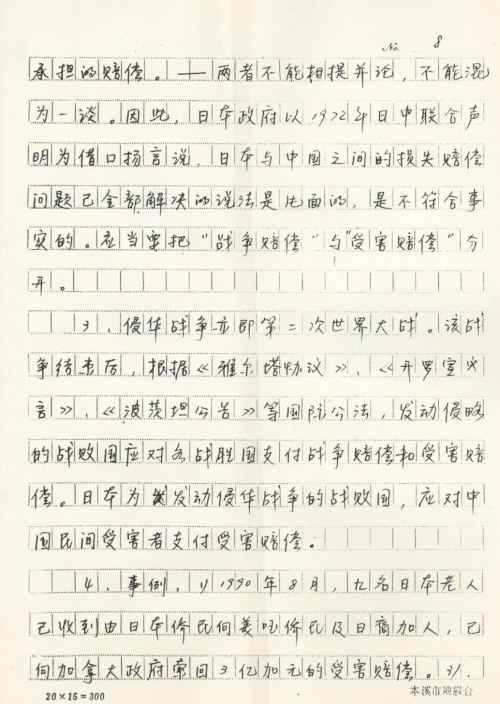 No. 8
承担的赔偿。——两者不能相提并论,不能混
为一谈。因此,日本政府以1972年日中联合声
明为借口扬言说,日本与中国之间的损失赔偿
问题已全部解决的说法是片面的,是不符合事
实的。应当要把“战争赔偿”与“受害赔偿”分
开。
3,侵华战争亦即第二次世界大战。该战
争结束后,根据《雅尔塔协议》、《开罗宣
言》、《波茨坦公告》等国际公法,发动侵略
的战败国应对各战胜国支付战争赔偿和受害赔
偿。日本为发动侵华战争的战败国,应对中
国民间受害者支付受害赔偿。
4,事例,1)1990年8月,九名日本老人
已收到由日本侨民向美
向加拿大政府索回3亿加元的受害赔偿。3).
20×15=300
本溪市地震台